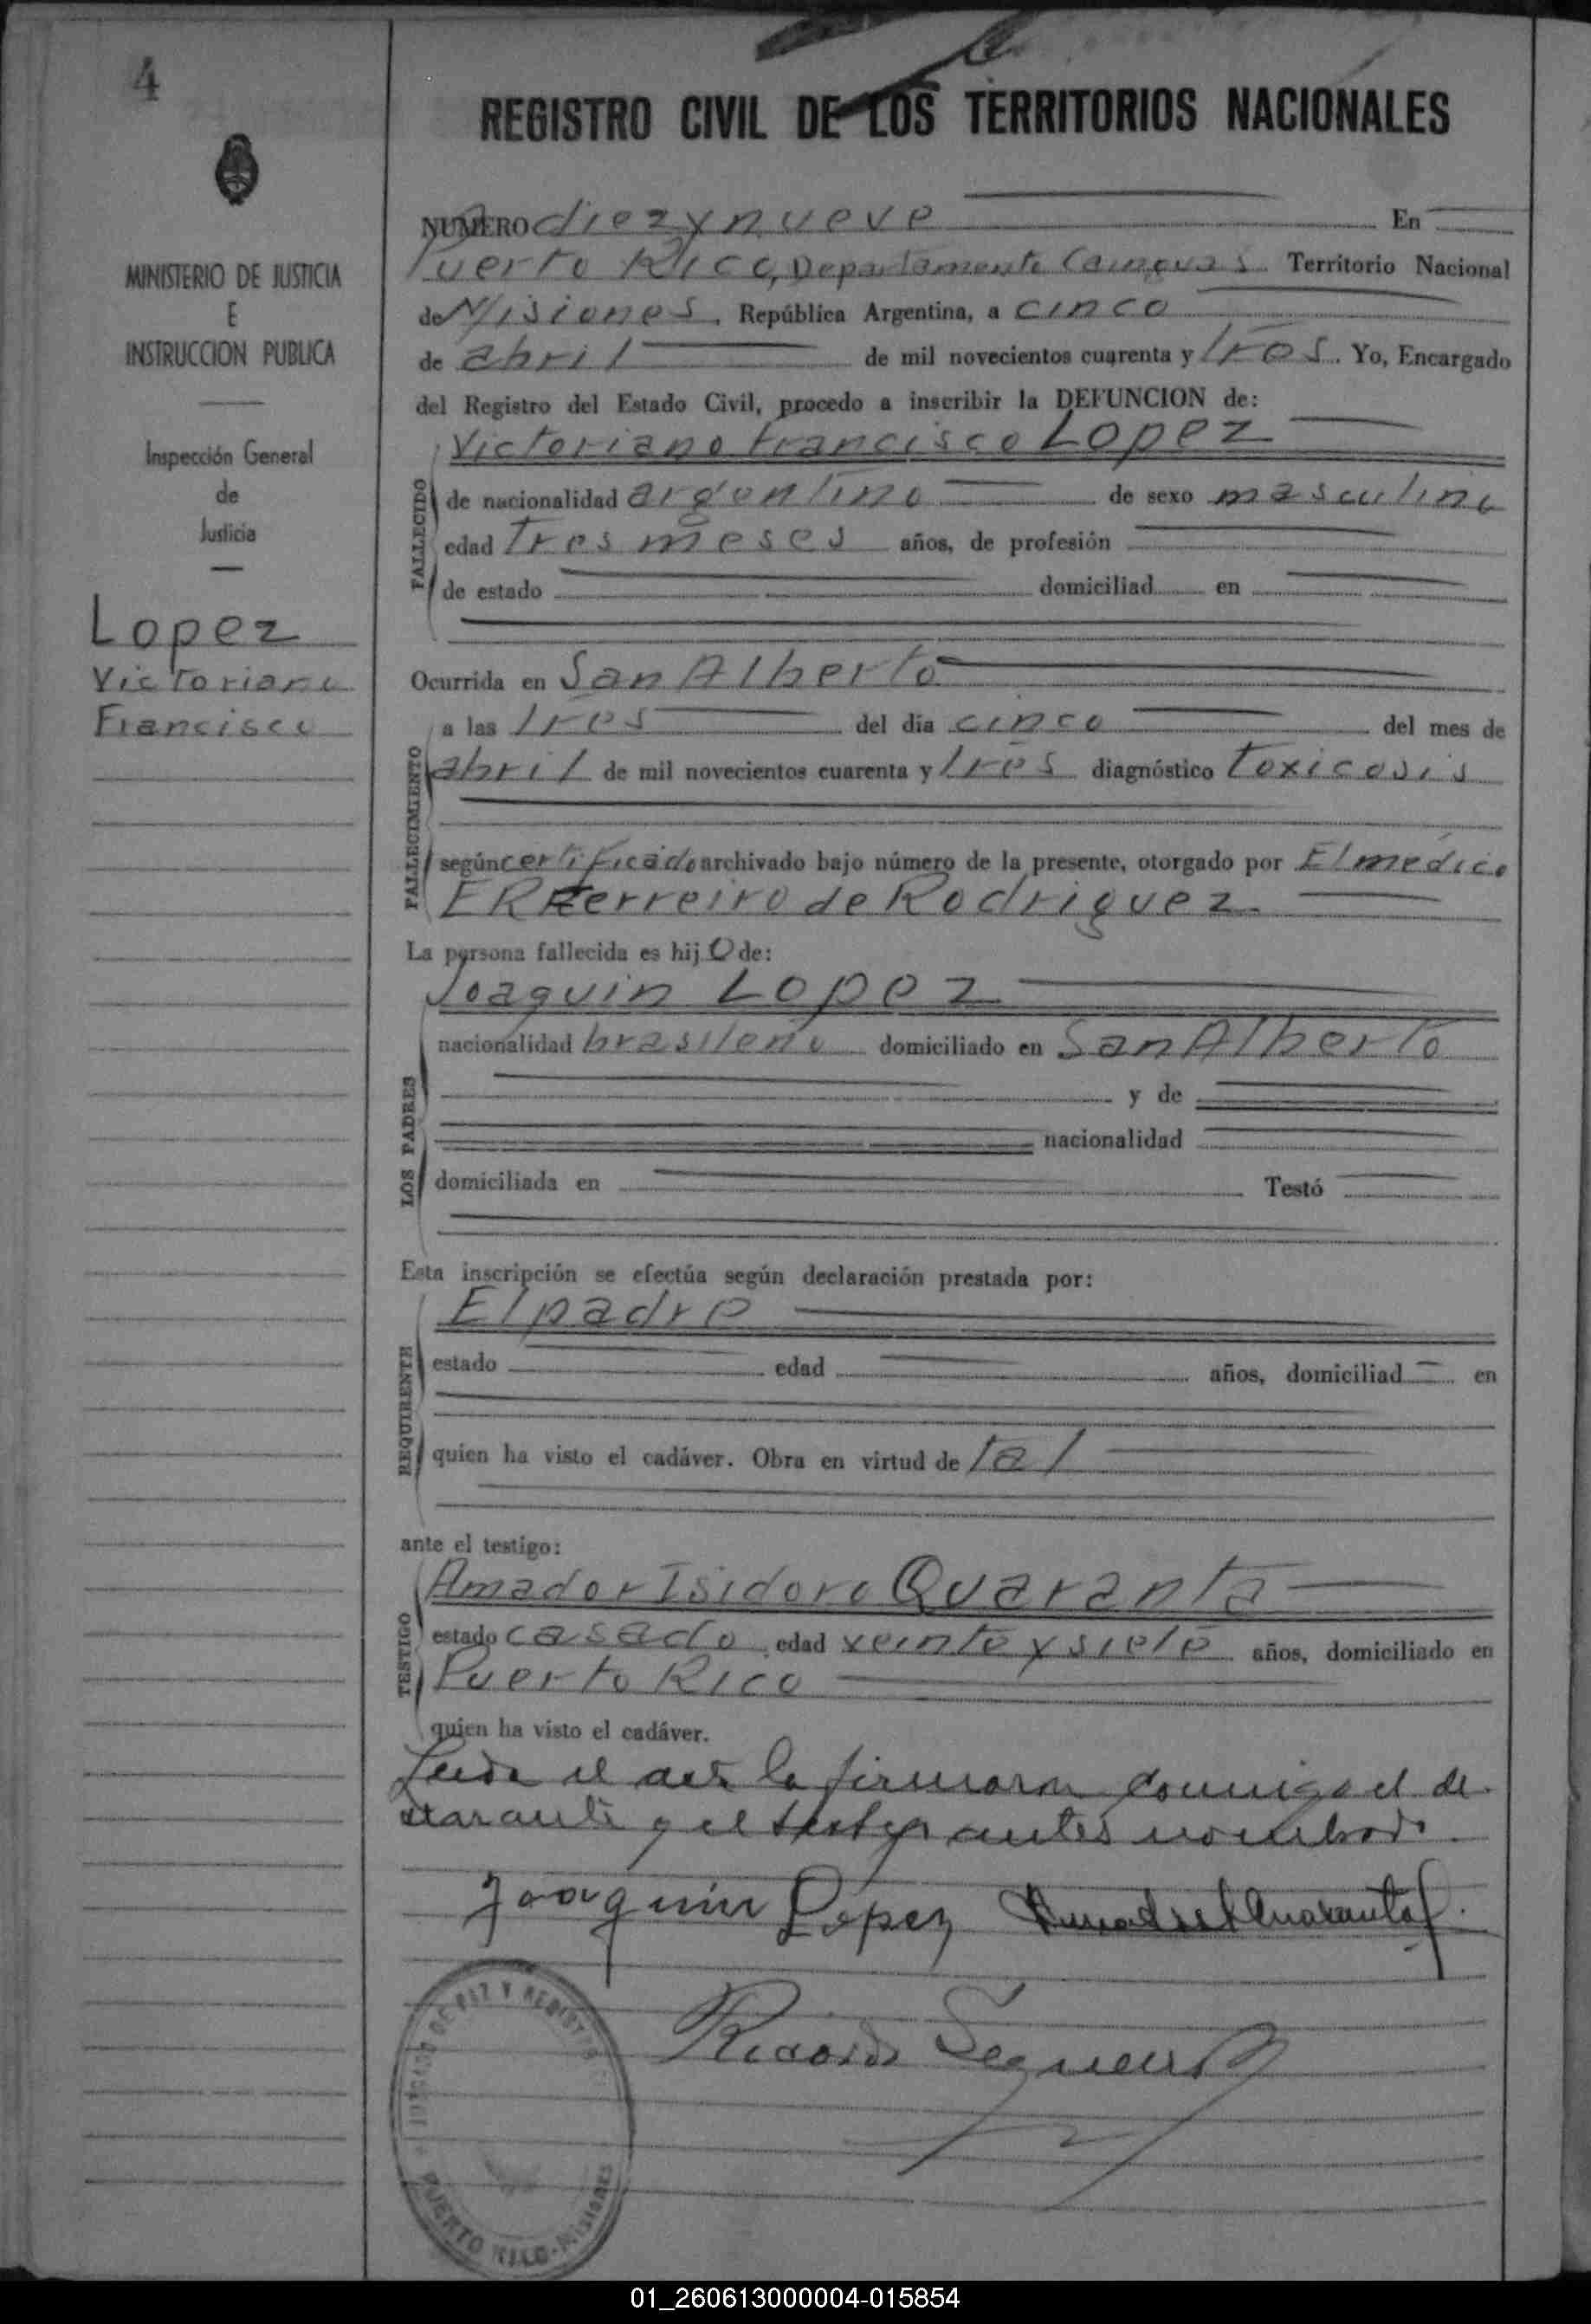 4
REGISTRO CIVIL DE LOS TERRITORIOS NACIONALES
MINISTERIO DE JUSTICIA
E
INSTRUCCION PUBLICA
Inspección General
de
Justicia
Lopez
Victoriano
Francisco
NUMERO diez y nueve En
Puerto Rico, Departamento Cainguas Territorio Nacional
de Misiones, República Argentina, a cinco
de abril de mil novecientos cuarenta y tres. Yo, Encargado
del Registro del Estado Civil, procedo a inscribir la DEFUNCION de:
Victoriano Francisco Lopez
FALLECIDO
de nacionalidad argentino de sexo masculino
edad tres meses años, de profesión
de estado domiciliad en
Ocurrida en San Alberto
a las tres del día cinco del mes de
FALLECIMIENTO
abril de mil novecientos cuarenta y tres diagnóstico toxicosis
según certificado archivado bajo número de la presente, otorgado por El médico
E R Ferreiro de Rodriguez
La persona fallecida es hijo de:
Joaquin Lopez
LOS PADRES
nacionalidad brasileño domiciliado en San Alberto
y de
nacionalidad
domiciliada en Testó
Esta inscripción se efectúa según declaración prestada por:
El padre
REQUIRENTE
estado edad años, domiciliad en
quien ha visto el cadáver. Obra en virtud de tal
ante el testigo:
Amador Isidoro Quaranta
TESTIGO
estado casado edad veinte y siete años, domiciliado en
Puerto Rico
quien ha visto el cadáver.
Leida el acta la firmaron conmigo el de
clarante y el testigo antes nombrado.
Joaquin Lopez Quaranta
Ricardo
JUZGADO DE PAZ Y REGISTRO
PUERTO RICO - MISIONES
01_260613000004-015854